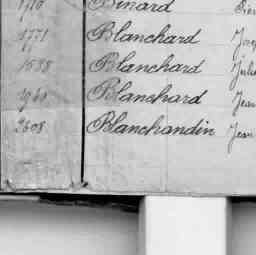 Binard
1771 Blanchard
1538 Blanchard Juli
1960 Blanchard Jean
2608 Blanchandin Jean